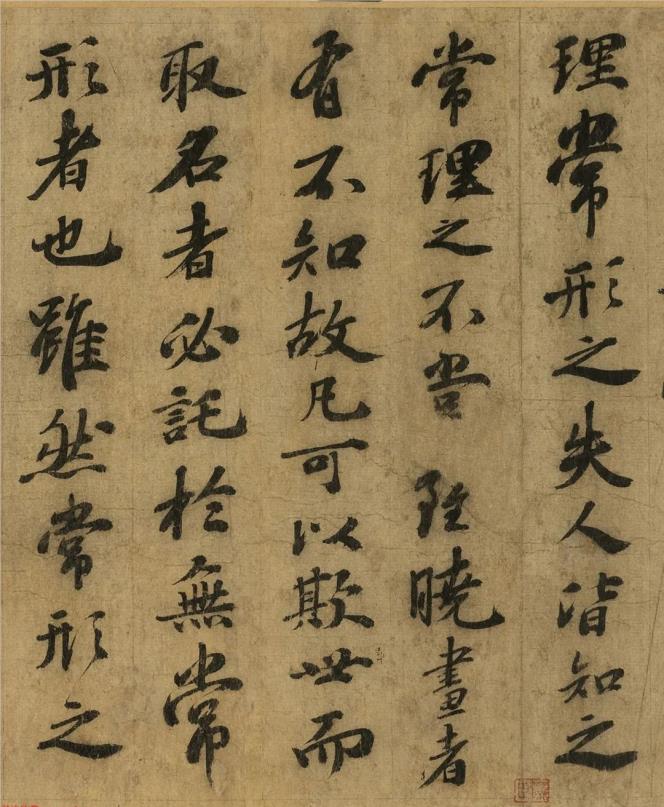 理常形之失人皆知之
常理之不當雖曉畫者
有不知故凡可以欺世而
取名者必託於無常
形者也雖然常形之